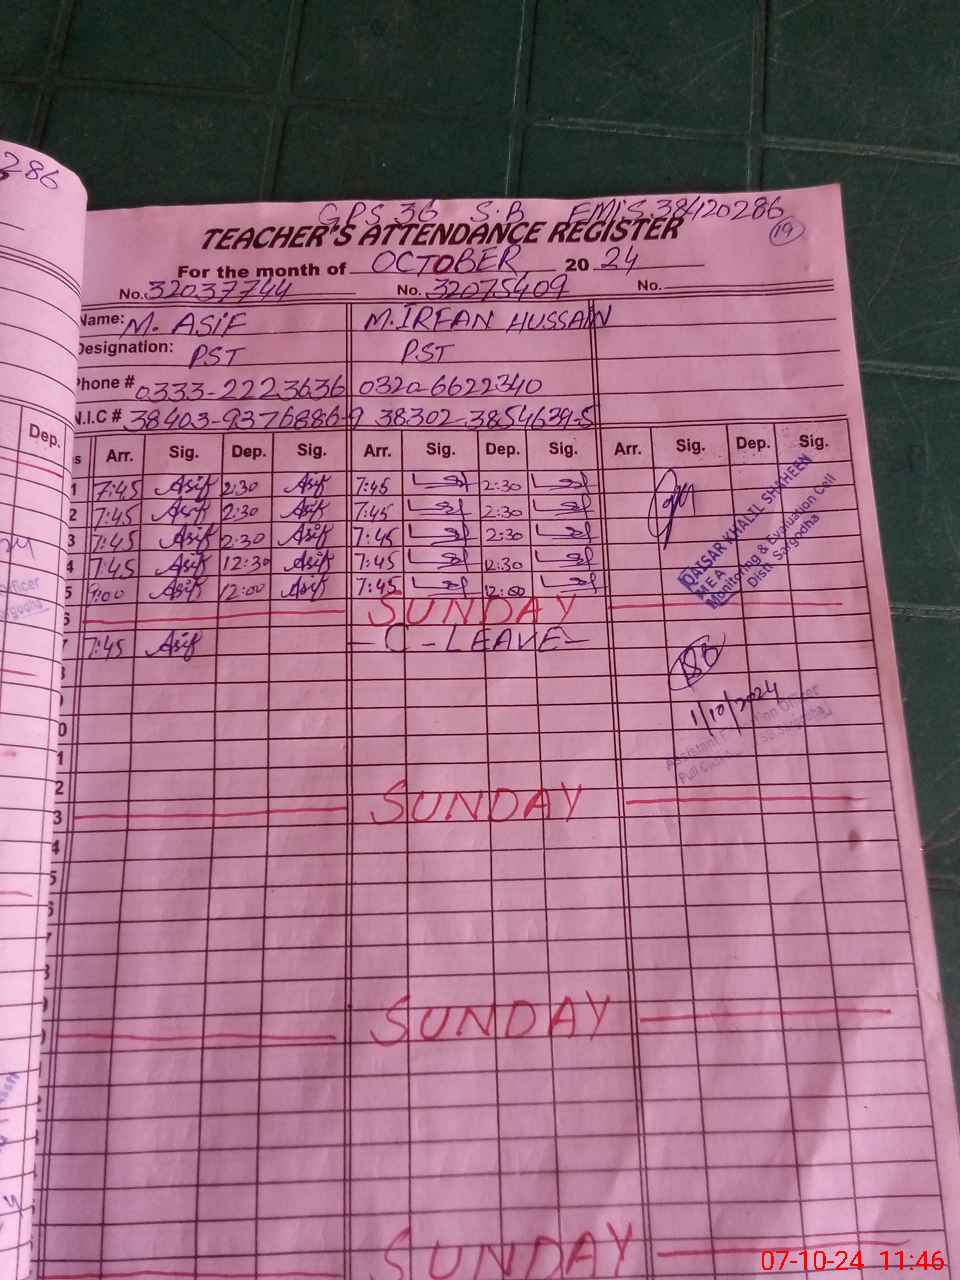 286
GPS 36 S.B EMIS.38420286
TEACHER'S ATTENDANCE REGISTER
19
For the month of OCTOBER 20 24
No. 32037744 No. 32075409 No.
Name: M. ASIF M. IRFAN HUSSAIN
Designation: PST PST
Phone # 0333-2223636 0320-6622340
N.I.C # 38403-9376886-9 38302-3854639-5
Dep.
Arr. Sig. Dep. Sig. Arr. Sig. Dep. Sig. Arr. Sig. Dep. Sig.
1 7:45 Asif 2:30 Asif 7:45 2:30
2 7:45 Asif 2:30 Asif 7:45 2:30
3 7:45 Asif 2:30 Asif 7:45 2:30
4 7:45 Asif 12:30 Asif 7:45 12:30
5 8:00 Asif 12:00 Asif 7:45 12:00
QAISAR KHALIL SHAHEEN
M E A
Monitoring & Evaluation Cell
Distt Sargodha
6 SUNDAY
7 7:45 Asif - C - LEAVE -
1/10/2024
Assistant Education Officer
SUNDAY
SUNDAY
SUNDAY
07-10-24 11:46